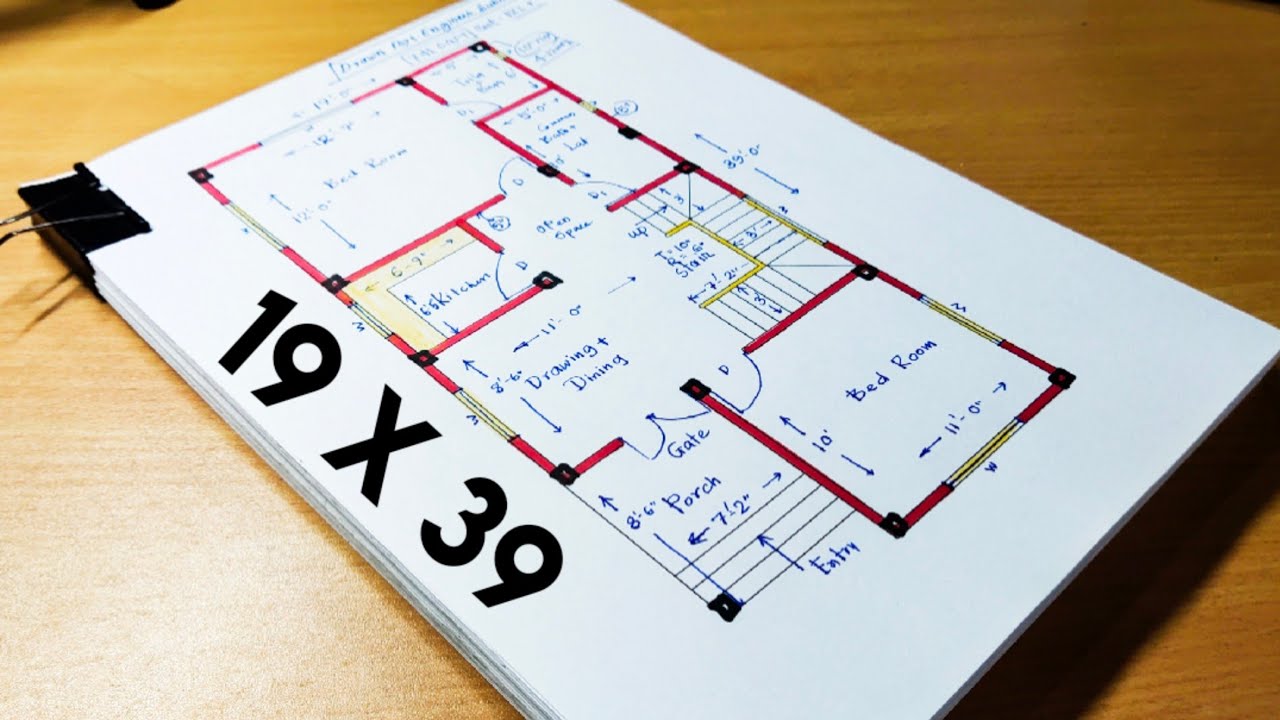 19'-0"
5'-0"
Common
Bath +
Lat
12'-2"
Bed Room
12'-0"
D
D2
39'-0"
Open
Space
UP
3'
3'
T=10"
R=6"
Stair
7'-2"
3'
6'-9"
Kitchen
D
11'-0"
Drawing +
Dining
8'-6"
W
D
Bed Room
10'
11'-0"
W
Gate
Porch
8'-6"
7'-2"
Entry
19 X 39